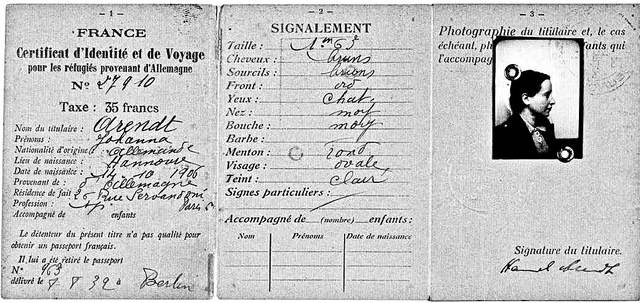 - 1 -
FRANCE
Certificat d'Identité et de Voyage
pour les réfugiés provenant d'Allemagne
N° 27910
Taxe : 35 francs
Nom du titulaire : Arendt
Prénoms : Johanna
Nationalité d'origine : allemande
Lieu de naissance : Hannovre
Date de naissance : 14 - 10 1906
Provenant de : Allemagne
Résidence de fait : 26 Rue Servandoni
Profession : Sp Paris 6
Accompagné de enfants
Le détenteur du présent titre n'a pas qualité pour
obtenir un passeport français.
Il lui a été retiré le passeport
N° 463
délivré le Berlin
- 2 -
SIGNALEMENT
Taille : 1m 63
Cheveux : bruns
Sourcils : bruns
Front : ord
Yeux : chat
Nez : moy
Bouche : moy
Barbe :
Menton : rond
Visage : ovale
Teint : clair
Signes particuliers :
Accompagné de (nombre) enfants :
Nom Prénoms Date de naissance
- 3 -
Photographie du titulaire et, le cas
échéant, ants qui
l'accompag
Signature du titulaire.